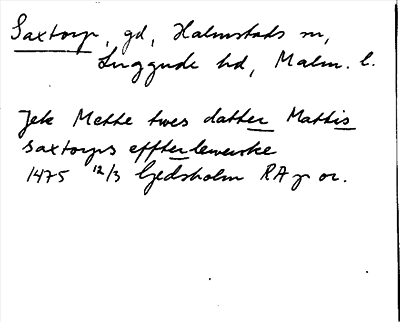 Saxtorp, gd, Halmstads sn,
Luggude hd, Malm. l.
Jek Mette twes datter Mattis
saxtorps effterlewerske
1475 12/3 Gedsholm RAp or.